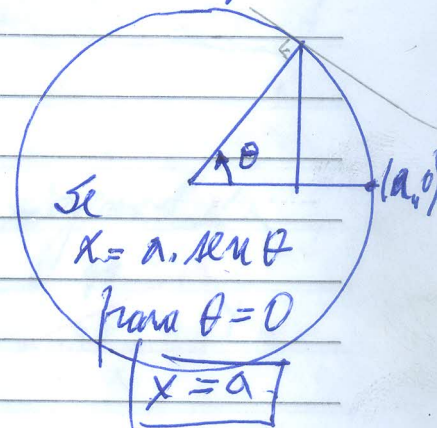 θ
(a,0)
Se
x = a. sen θ
para θ = 0
x = a